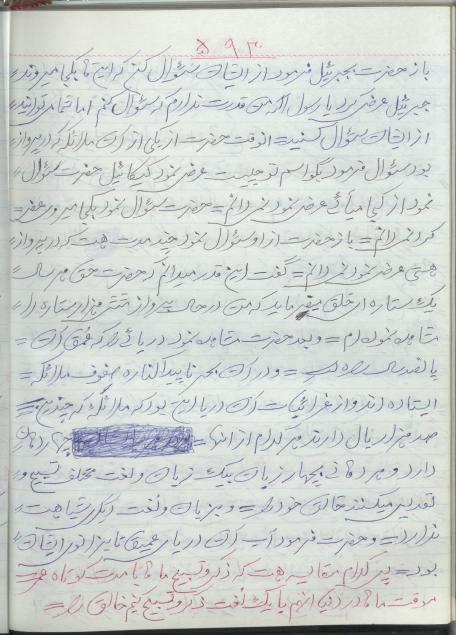 ۵۹۳
باز حضرت بجبرئیل فرمود از ایشان سئوال کنم که اینها بکجا میروند =
جبرئیل عرض کرد یا رسول الله من قدرت ندارم که سئوال کنم اما شما میتوانید =
از ایشان سئوال کنید = آنوقت حضرت از یکی از آن ملائکه که در پرواز =
بود سئوال فرمود بگو اسم تو چیست عرض نمود کیکائیل حضرت سئوال =
نمود از کجا میآئی عرض نمود نمی دانم = حضرت سئوال نمود بکجا میرود عرض =
کرد نمی دانم = باز حضرت از او سئوال نمود چند مدت هست که در پرواز =
هستی عرض نمود نمی دانم = گفت اینقدر میدانم که حضرت حق هر سال
یک ستاره ای خلق میفرماید که من در حال پرواز هزار ستاره را =
مشاهده نموده ام = و بعد حضرت مشاهده نمود دریائی را که عمق آن =
پانصد ساله راه = و در آن بحر ناپیدا کناره صفوف ملائکه =
ایستاده اند و از غرائبات آن دریا این بود که ملائکه که چندین =
صد هزار بال دارند هر کدام از آنها = چهار دهان
دارد و هر دهانی چهار زبان بیک زبان و لغت مختلف تسبیح و
تقدیس میکنند خالق خود را = و هر زبان و لغت دیگری شباهت =
ندارد = و حضرت فرمود آب آن دریای عمیق تا نور ایشان
بود = پس کدام مقایسه هست که ذکر و تسبیح ما ها با مدت کوتاه عمر =
موقت ما ها در دنیا آنهم با یک لغت ذکر و تسبیح کنیم خالق را =